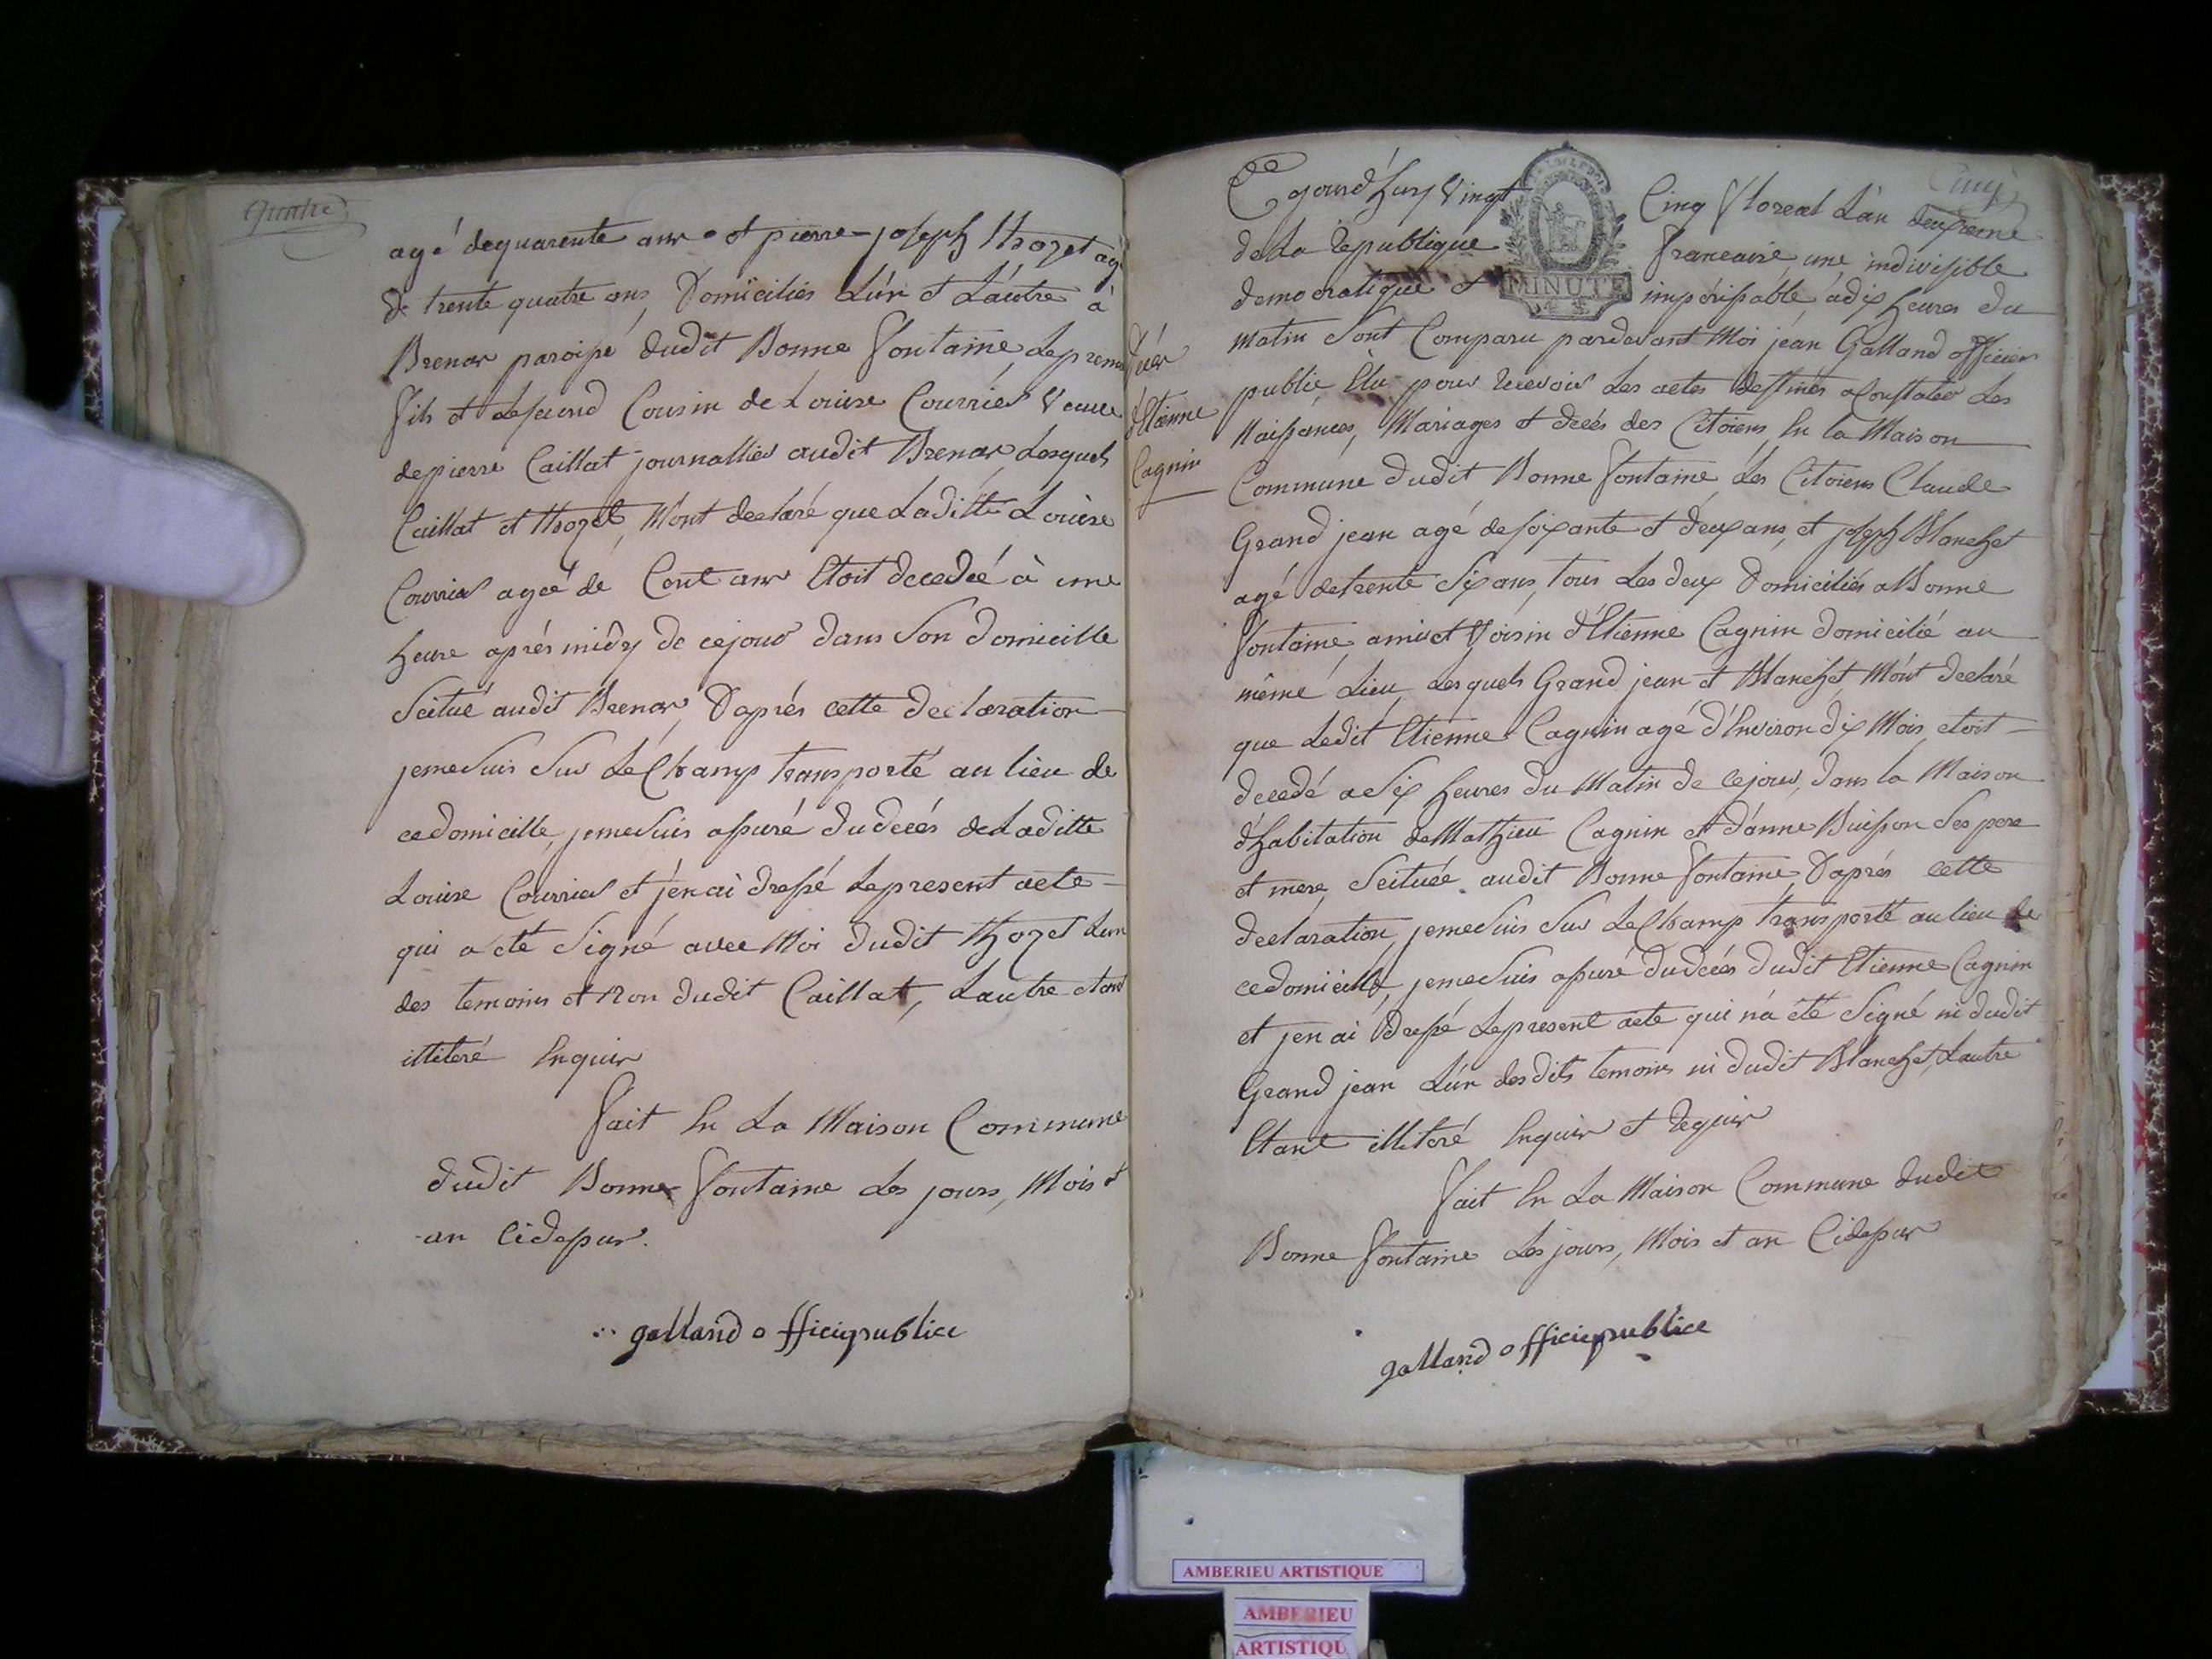 quatre
agé dequarente ans et pierre-joseph thozet agé
de trente quatre ans, Domiciliés Lún et Láutre à
Brenas paroipe dudit Bonne fontaine, Lepremier
fils et Lesecond Cousin de Louise Courrier Veuve
depierre Caillat journallier audit Brenas, Lesquels
Caillat et thozet, Mont declaré que Laditte Louise
Courrier ageé de Cent ans Etoit decedeé à une
heure aprés midy de cejour dans Son domicille
Scitué audit Brenas, Daprés cette declaration
jemesuis Sur LeChamp transporté au lieu de
cedomicille, jemesuis assuré dudeces deLaditte
Louise Courrier et jénai dressé Lepresent acte
qui a eté Signé avec Moi dudit thozet Lun
des temoins et Non dudit Caillat, Lautre etant
illiteré Enquis
fait En La Maison Commune
dudit Bonne fontaine Les jours, Mois et
an Cidessus.
galland officiepublice
Cinq
Cejourdhuy Vingt Cinq floreal Lán deuxieme
deLa Republique francaise une indivisible
democratique et impérissable, adix heures du
MINUTE
matin Sont Comparu pardevant Moi jean Galland officier
public, Elu pour Recevoir Les actes destinés aConstater Les
Naissances, Mariages et decés des Citoiens En la Maison
Commune dudit Bonne fontaine, Les Citoiens Claude
Grand jean agé desoixante et deux ans, et joseph Blanchet
agé detrente Six ans, tous Les deux Domiciliés aBonne
fontaine, amis et Voisin dÉtienne Cagnin domicilié au
même Lieu, Lesquels Grand jean et Blanchet Mónt declaré
que Ledit Etienne Cagnin agé dÉnviron dix Mois, etoit
decedé aSix heures du Matin de Cejour, dans la Maison
dhabitation deMathieu Cagnin et dánne Buisson Ses pere
et mere, Scitueé audit Bonne fontaine, Daprés cette
declaration, jemesuis Sur LeChamp transporté aulieu de
cedomicille, jemesuis assuré dudecés dudit Etienne Cagnin
et jen ai dressé Lepresent acte qui ná eté Signé ni dudit
Grand jean Lún desdits temoins ni dudit Blanchet, Lautre
Etant illiteré Enquis et Requis
fait En La Maison Commune dudit
Bonne fontaine Les jours, Mois et an Cidessus
galland officiepublice
dÉtienne
Cagnin
AMBERIEU ARTISTIQUE
AMBERIEU
ARTISTIQU